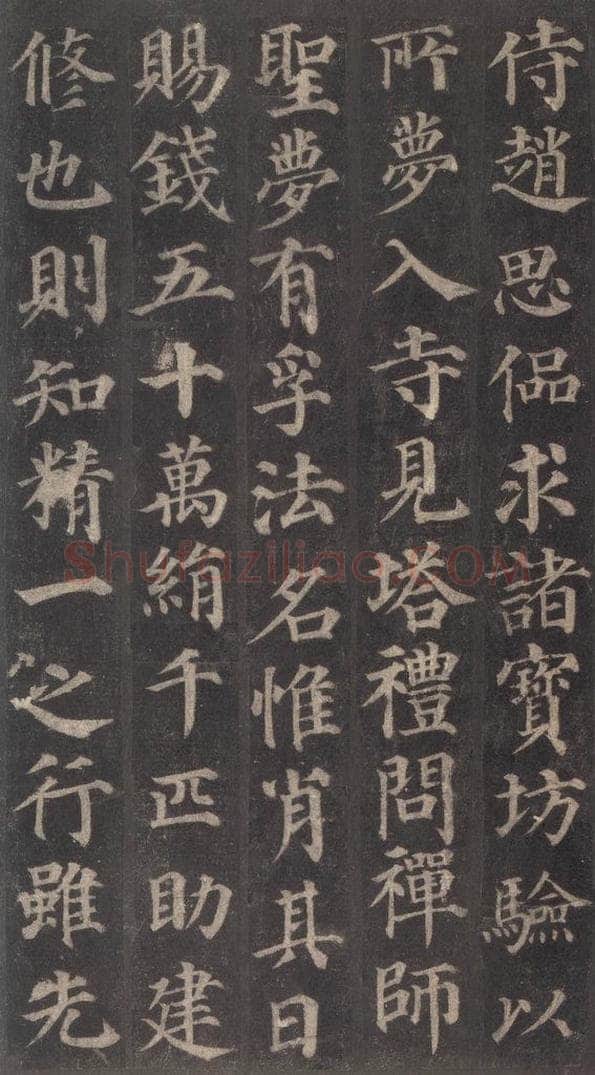 侍趙思偘求諸寶坊驗以
所夢入寺見塔禮問禪師
聖夢有孚法名惟肖其日
賜錢五十萬絹千匹助建
修也則知精一之行雖先
Shufaziliao.COM